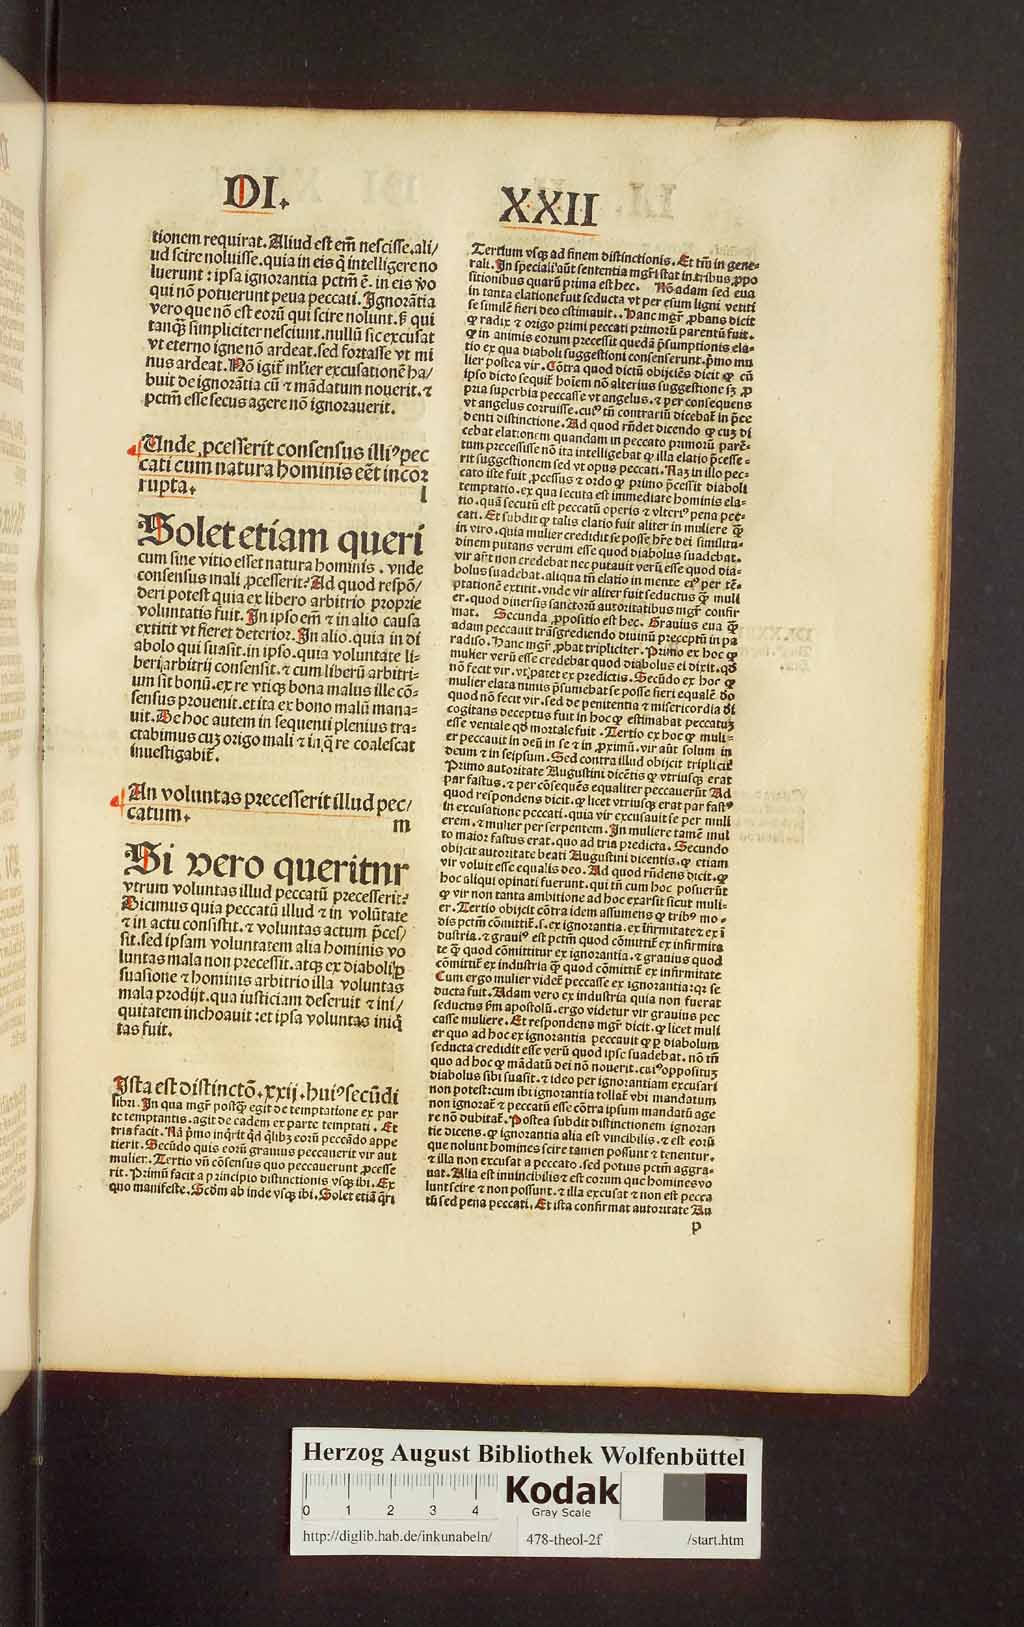 DI.
XXII
tionem requirat. Aliud est em̄ nescisse. ali/
ud scire noluisse. quia in eis q̄ intelligere no
luerunt : ipsa ignorantia pctm̄ ē. in eis v̓o
qui nō potuerunt peua peccati. Ignorātia
vero que nō est eorū qui scire nolunt. sꝫ qui
tanqꝫ simpliciter nesciunt. nullū sic excusat
vt eterno igne nō ardeat. sed fortasse vt mi
nus ardeat. Nō igit̄ mlier excusationē ha/
buit de ignorātia cū ⁊ mādatum nouerit. ⁊
pctm̄ esse secus agere nō ignorauerit.
Unde ꝓcesserit consensus illiꝰ pec
cati cum natura hominis eēt incor
rupta.
l
Solet etiam queri
cum sine vitio esset natura hominis. vnde
consensus mali ꝓcesserit? Ad quod respō/
deri potest quia ex libero arbitrio proprie
voluntatis fuit. In ipso em̄ ⁊ in alio causa
extitit vt fieret deterior. In alio. quia in di
abolo qui suasit. in ipso. quia voluntate li-
beri arbitrij consensit. ⁊ cum liberū arbitri-
um sit bonū. ex re vtiqꝫ bona malus ille cō-
sensus prouenit. et ita ex bono malū mana-
uit. De hoc autem in sequenti plenius tra-
ctabimus cuꝫ origo mali ⁊ in q̄ re coalescat
inuestigabit̄.
An voluntas precesserit illud pec/
catum.
m
Si vero queritnr
vtrum voluntas illud peccatū precesserit?
Dicimus quia peccatū illud ⁊ in volūtate
⁊ in actu consistit. ⁊ voluntas actum p̄ces/
sit. sed ipsam voluntatem alia hominis vo
luntas mala non precessit. atqꝫ ex diaboli ꝑ
suasione ⁊ hominis arbitrio illa voluntas
mala prodijt. qua iusticiam deseruit ⁊ ini/
quitatem inchoauit : et ipsa voluntas iniq̄
tas fuit.
Ista est distinctō. xxij. huiꝰ secūdi
libri. In qua mgr̄ postqꝫ egit de temptatione ex par
te temptantis. agit de eadem ex parte temptati. Et
tria facit. Nā p̄mo inq̄rit q̄d q̄libꝫ eorū peccādo appe
tierit. Secūdo quis eorū grauius peccauerit vir aut
mulier. Tertio vn̄ cōsensus quo peccauerunt ꝓcesse
rit. Primū facit a principio distinctionis vsqꝫ ibi. Ex
quo manifeste. Scd̄m ab inde vsqꝫ ibi. Solet etiā q̄ri
Tertium vsqꝫ ad finem distinctionis. Et tm̄ in gene-
rali. In speciali aūt sententia mgr̄i stat in tribus ꝓpo
sitionibus quarū prima est hec. Nō adam sed eua
in tanta elatione fuit seducta vt per esum ligni vetiti
se similē fieri deo estimauit.. Hanc mgr̄ ꝓbans dicit
ꝙ radix ⁊ origo primi peccati primorū parentū fuit.
ꝙ in animis eorum precessit quedā p̄sumptionis ela-
tio ex qua diaboli suggestioni consenserunt. p̄mo mu
lier postea vir. Cōtra quod dictū obijciēs dicit ꝙ cū
ipso dicto sequit̄ hoīem nō alterius suggestione sꝫ ꝓ
pria superbia peccasse vt angelus. ⁊ per consequens
vt angelus corruisse. cuiꝰ tn̄ contrariū dicebat̄ in p̄ce
denti distinctione. Ad quod rn̄det dicendo ꝙ cuꝫ di
cebat elationem quandam in peccato primorū parē-
tum precessisse nō ita intelligebat ꝙ illa elatio p̄cesse-
rit suggestionem sed vt opus peccati. Naꝫ in illo pec-
cato iste fuit ꝓcessus ⁊ ordo ꝙ primo p̄cessit diaboli
temptatio. ex qua secuta est immediate hominis ela-
tio. quā secutū est peccatū operis ⁊ vlteriꝰ pena pec-
cati. Et subdit ꝙ talis elatio fuit aliter in muliere qꝫ
in viro. quia mulier credidit se posse hr̄e dei similitu-
dinem putans verum esse quod diabolus suadebat.
vir aūt non credebat nec putauit verū esse quod dia-
bolus suadebat. aliqua tn̄ elatio in mente eiꝰ per tē-
ptationē extitit. vnde vir aliter fuit seductus qꝫ muli
er. quod diuersis sanctorū autoritatibus mgr̄ confir
mat. Secunda ꝓpositio est hec. Grauius eua qꝫ
adam peccauit trāsgrediendo diuinū preceptū in pa
radiso. Hanc mgr̄ ꝓbat tripliciter. Primo ex hoc ꝙ
mulier verū esse credebat quod diabolus ei dixit. qd̓
nō fecit vir. vt patet ex predictis. Secūdo ex hoc ꝙ
mulier elata nimis p̄sumebat se posse fieri equalē do
quod nō fecit vir. sed de penitentia ⁊ misericordia di
cogitans deceptus fuit in hoc ꝙ estimabat peccatuꝫ
esse veniale qd̓ mortale fuit. Tertio ex hoc ꝙ muli-
er peccauit in deū in se ⁊ in ꝓximū. vir aūt solum in
deum ⁊ in seipsum. Sed contra illud obijcit tripliciē
Primo autoritate Augustini dicētis ꝙ vtriusqꝫ erat
par fastus. ⁊ per cōsequēs equaliter peccauerūt Ad
quod respondens dicit. ꝙ licet vtriusqꝫ erat par fastꝰ
in excusatione peccati. quia vir excusauit se per muli
erem. ⁊ mulier per serpentem. In muliere tamē mul
to maior fastus erat. quo ad tria predicta. Secundo
obijcit autoritate beati Augustini dicentis. ꝙ etiam
vir voluit esse equalis deo. Ad quod rn̄dens dicit. ꝙ
hoc aliqui opinati fuerunt. qui tn̄ cum hoc posuerūt
ꝙ vir non tanta ambitione ad hoc exarsit sicut muli-
er. Tertio obijcit cōtra idem assumens ꝙ tribꝰ mo-
dis pctm̄ cōmittit̄. s. ex ignorantia. ex īfirmitate ⁊ ex ī
dustria. ⁊ grauiꝰ est pctm̄ quod cōmittit̄ ex infirmita
te qꝫ quod cōmittitur ex ignorantia. ⁊ grauius quod
cōmittit̄ ex industria qꝫ quod cōmittit̄ ex infirmitate
Cum ergo mulier videt̄ peccasse ex ignorantia: qꝛ se
ducta fuit. Adam vero ex industria quia non fuerat
seductus ꝟm apostolū. ergo videtur vir grauius pec
casse muliere. Et respondens mgr̄ dicit. ꝙ licet muli
er quo ad hoc ex ignorantia peccauit ꝙ ꝑ diabolum
seducta credidit esse verū quod ipse suadebat. nō tn̄
quo ad hoc ꝙ mādatū dei nō nouerit. cuiꝰ opposituꝫ
diabolus sibi suasit. ⁊ ideo per ignorantiam excusari
non potest: cum ibi ignorantia tollat̄ vbi mandatum
non ignorat̄ ⁊ peccatū esse cōtra ipsum mandatū age
re nō dubitat̄. Postea subdit distinctionem ignoran
tie dicens. ꝙ ignorantia alia est vincibilis. ⁊ est eorū
que nolunt homines scire tamen possunt ⁊ tenentur.
⁊ illa non excusat a peccato. sed potius pctm̄ aggra-
uat. Alia est inuincibilis ⁊ est eorum que homines vo
lunt scire ⁊ non possunt. ⁊ illa excusat ⁊ non est pecca
tū sed pena peccati. Et ista confirmat autoritate Au
p
Herzog August Bibliothek Wolfenbüttel
0 1 2 3 4
Kodak
Gray Scale
http://diglib.hab.de/inkunabeln/ 478-theol-2f /start.htm